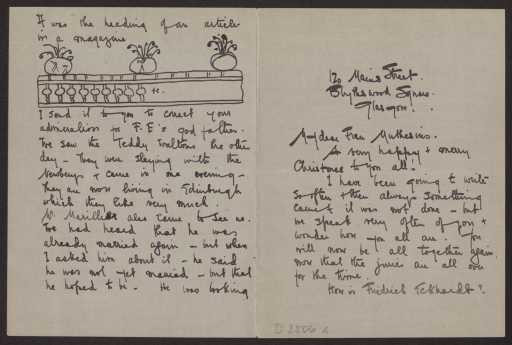 It was the heading of an article
in a magazine
etc.
I send it to you to correct your
admiration for F.E's god father.
We saw the Teddy Waltons the other
day - they were staying with the
Newberys & came in one evening -
they are now living in Edinburgh
which they like very much.
M. Marillier also came to see us.
We had heard that he was
already married again - but when
I asked him about it - he said
he was not yet married - but that
he hoped to be - He was looking
120 Mains Street.
Blythswood Square.
Glasgow.
My dear Frau Muthesius.
A very happy & merry
Christmas to you all!
I have been going to write
so often & then always something
came & it was not done - but
we speak very often of you &
wonder how you all are. You
will now be all together again
now that the are all over
for the time.
How is Eckhardt?
D 2806 a